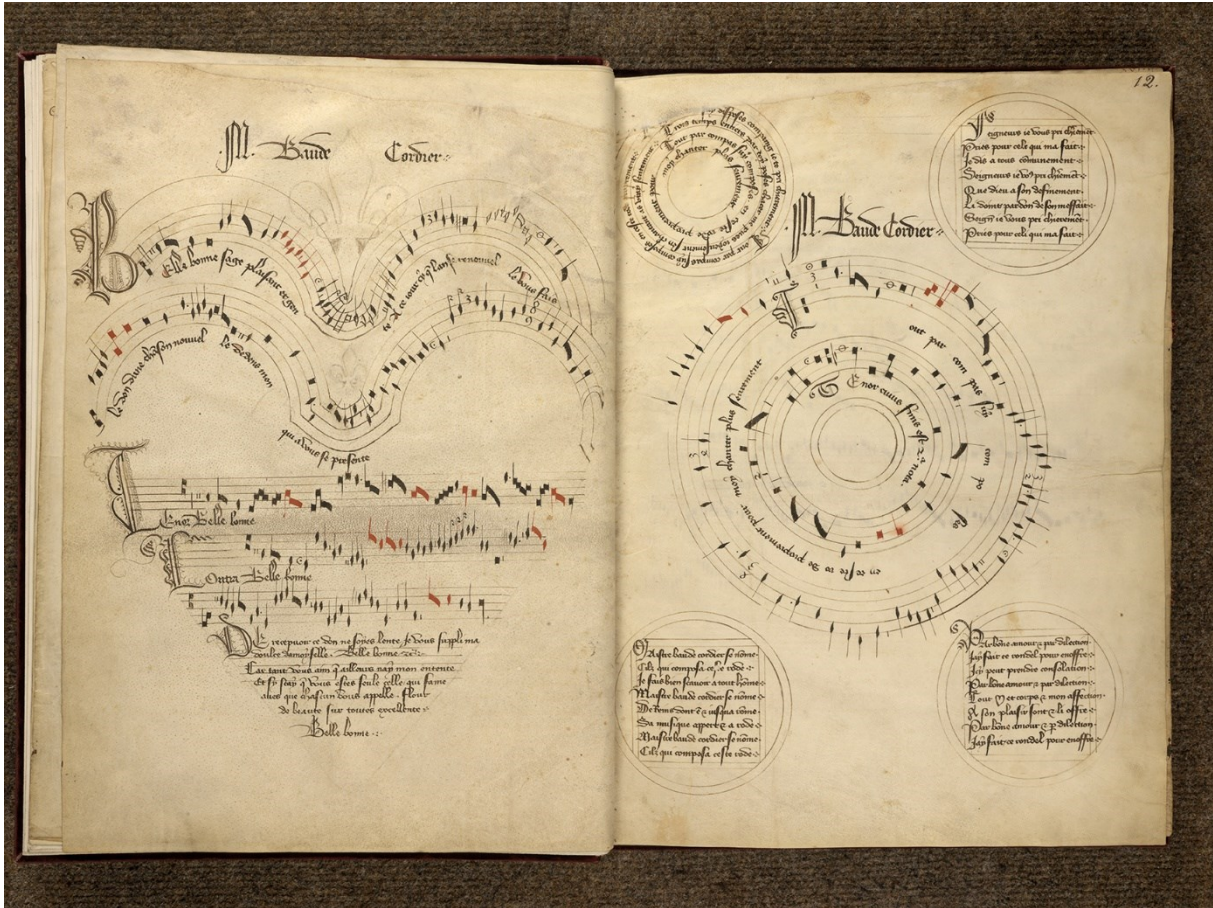 M. Baude Cordier
Belle bonne sage plaisant et gen
te A ce jour cy q̄ lan se renouvel
le Vous fais
le don dune chāson nouvel
le Dedens mon
qui a vous se presente
Tenor Belle bonne
Contra Belle bonne
De recepvoir ce don ne soyes lente Je vous suppli ma
doulce damoyselle. Belle bonne
Car tant vous aim q̄ aillours nay mon entente
Et sy scay q̄ vous estes seule celle qui fame
aves que chascun vous appelle. Flour
de beaute sur toutes excellente
Belle bonne
12.
M. Baude Cordier
Tout par compas suy composes
en ceste rode proprement
pour moy chanter plus seurement
Trois temps entiers par toy poses
Seigneurs ie vous pri chierement
Pries pour celi qui ma fait
Je dis a tous communement
Seigneurs ie vo9 pri chieremēt
Que dieu a son definement
Li doint pardon de son meffait
Seigñ ie vous pri chierement
Pries pour celi qui ma fait
Tout par com pas suy com po ses
en ceste ro de proprement pour moy chanter plus seurement
Tenor cuius finis est 2ª nota
Maistre baude cordier se nōme
Cilz qui composa ceste rode
Je fais bien scavoir a tout hōme
Maistre baude cordier se nōme
De Reins dont est iusqua rōme
Sa musique appert a rode
Maistre baude cordier se nōme
Cilz qui composa ceste rode
Par bōne amour z par dilection
Jay fait ce rondel pour en offre
Icy peut prendre consolation
Par bōne amour z par dilection
Tout et corps z mon affection
A son plaisir sont z li offre
Par bōne amour z p dilection
Jay fait ce rondel pour en offre